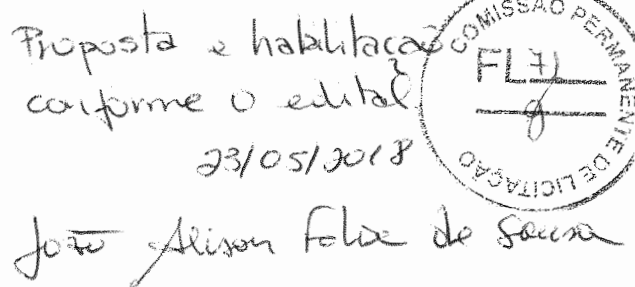 Proposta e habilitação
conforme o edital
23/05/2018
João Alison Felix de Sousa
COMISSÃO PERMANENTE DE LICITAÇÃO
FL 71